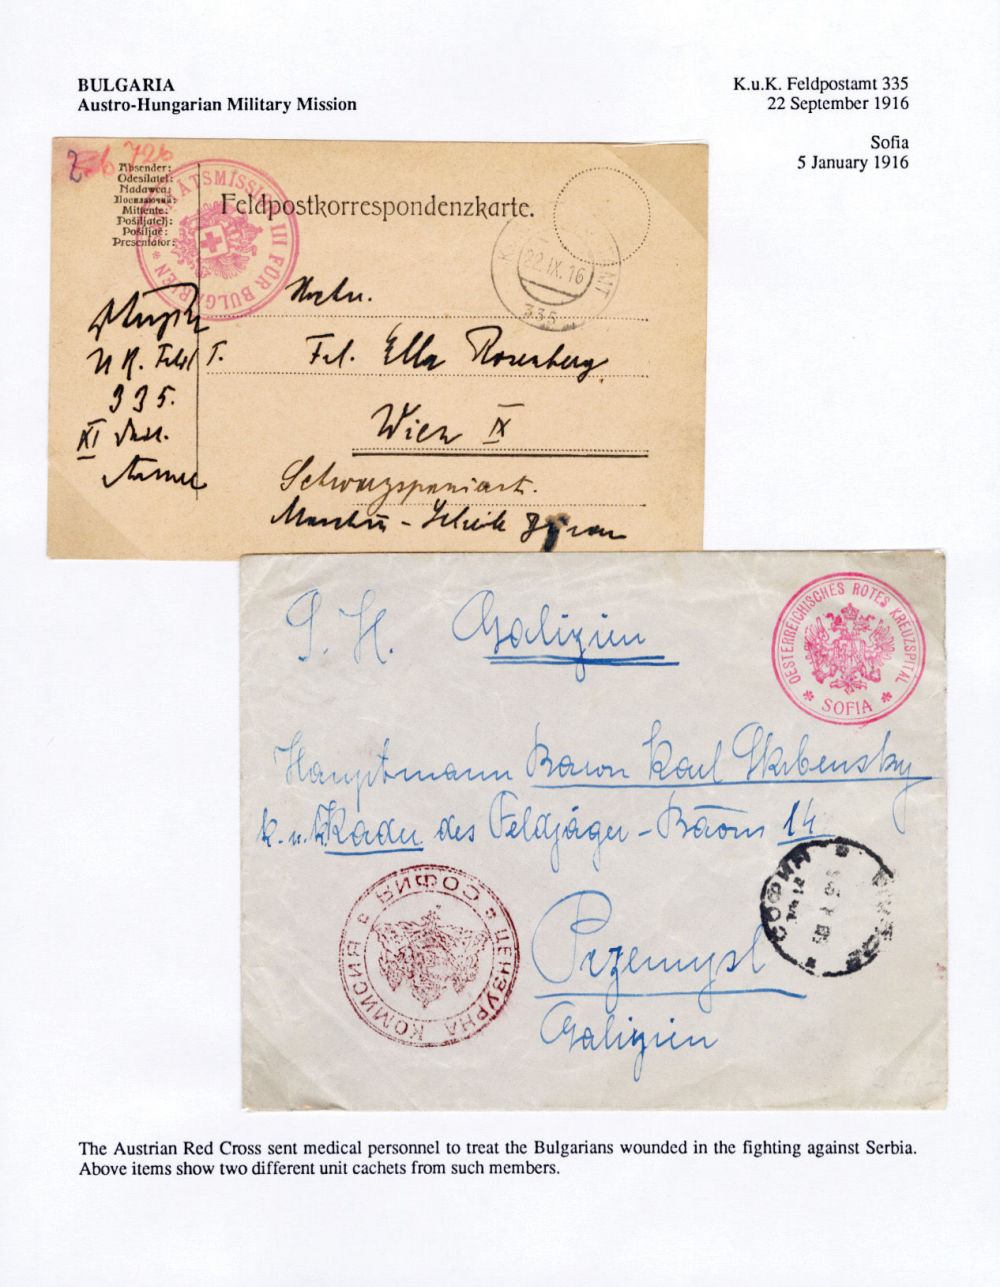 BULGARIA
Austro-Hungarian Military Mission
K.u.K. Feldpostamt 335
22 September 1916
Sofia
5 January 1916
Z 726
Absender:
Odesilatel:
Nadawca:
Посилаючий:
Mittente:
Pošiljatelj:
Pošiljač:
Presentator:
TSMISSION III FÜR BULGARIEN
Feldpostkorrespondenzkarte.
22.IX.16
335
335.
XI
Frl. Ella Rosenberg
Wien IX
Schwarzspanierstr.
OESTERREICHISCHES ROTES KREUZSPITAL
* SOFIA *
S. H. Galizien
Hauptmann Baron Karl Skrbensky
k. u. k. Kader des Feldjäger-Baons 14
СОФИЯ
ЦЕНЗУРНА КОМИСИЯ
СОФИЯ
Przemysl
Galizien
The Austrian Red Cross sent medical personnel to treat the Bulgarians wounded in the fighting against Serbia.
Above items show two different unit cachets from such members.